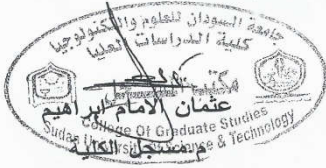 جامعة السودان للعلوم والتكنولوجيا
كلية الدراسات العليا
مكتب
عثمان الامام ابراهيم
م.مسجل الكلية
College Of Graduate Studies
Sudan University of Science & Technology